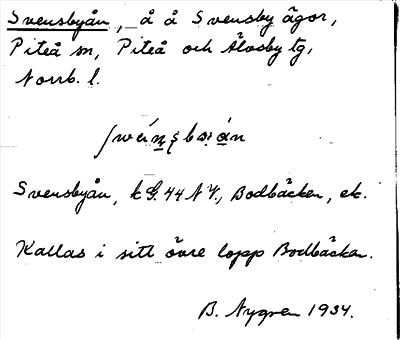 Svensbyån, å å Svensby ägor,
Piteå sn, Piteå och Älvsby tg,
Norrb. l.
Svensbyån, k G. 44 N V., Bodbäcken, ek.
Kallas i sitt övre lopp Bodbäcken.
B. Nygren 1934.